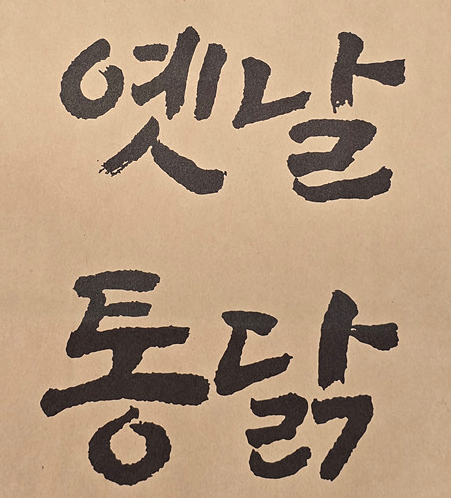 옛날
통닭